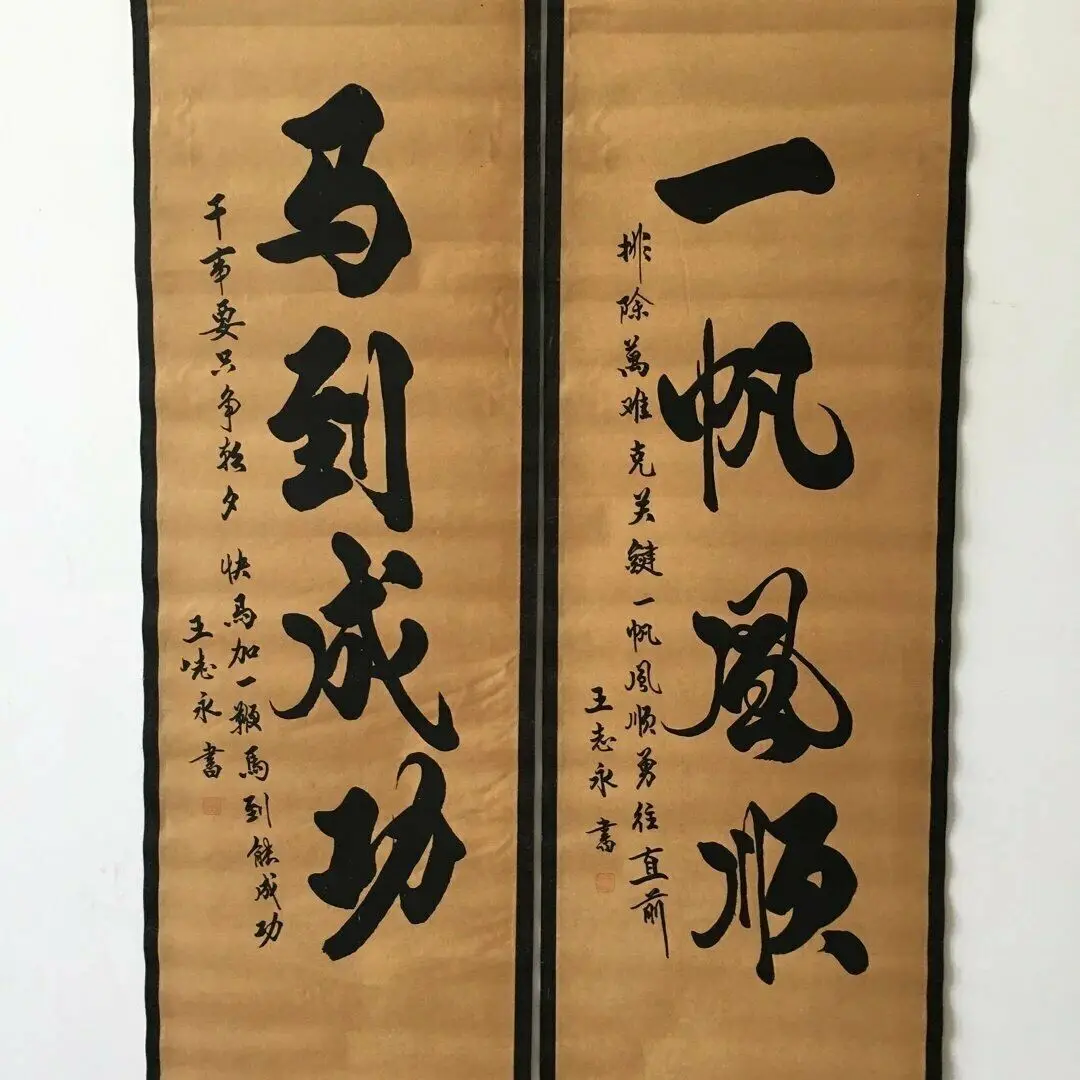 一帆風顺
排除萬难克关鍵一帆風顺勇往直前
王志永書
马到成功
干事要只争朝夕 快馬加一鞭馬到能成功
王志永書